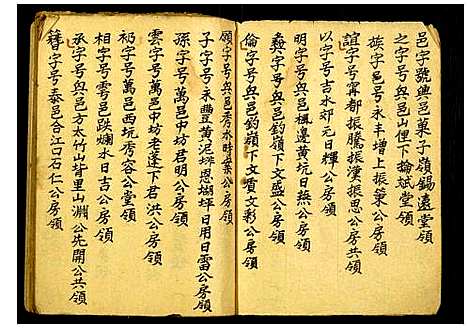 邑字號興邑菓子嶺錫遠堂領
之字号興邑山俚下掄斌堂領
族字号永丰增上振策公房領
誼字号寧都振騰振漢振思公房領
以字号吉水郊元日輝公房領
明字号興邑楓邊黄坑日煕公房領
彝字号興邑釣嶺下文盛公房領
倫字号興邑釣嶺下文貴文彩公房領
願字号興邑秀水時葉公房領
子字号永豐黄泥坪恩塘坪日用日雷公房領
孫字号萬邑中坊君明公房領
雲字号萬邑中坊老蓬下君洪公房領
礽字号萬邑西坑秀容公堂領
相字号雲邑跌爛水日吉公房領
承字号興邑方太竹山背里山渊公先開公共領
簪字号泰邑合江口石仁公房領